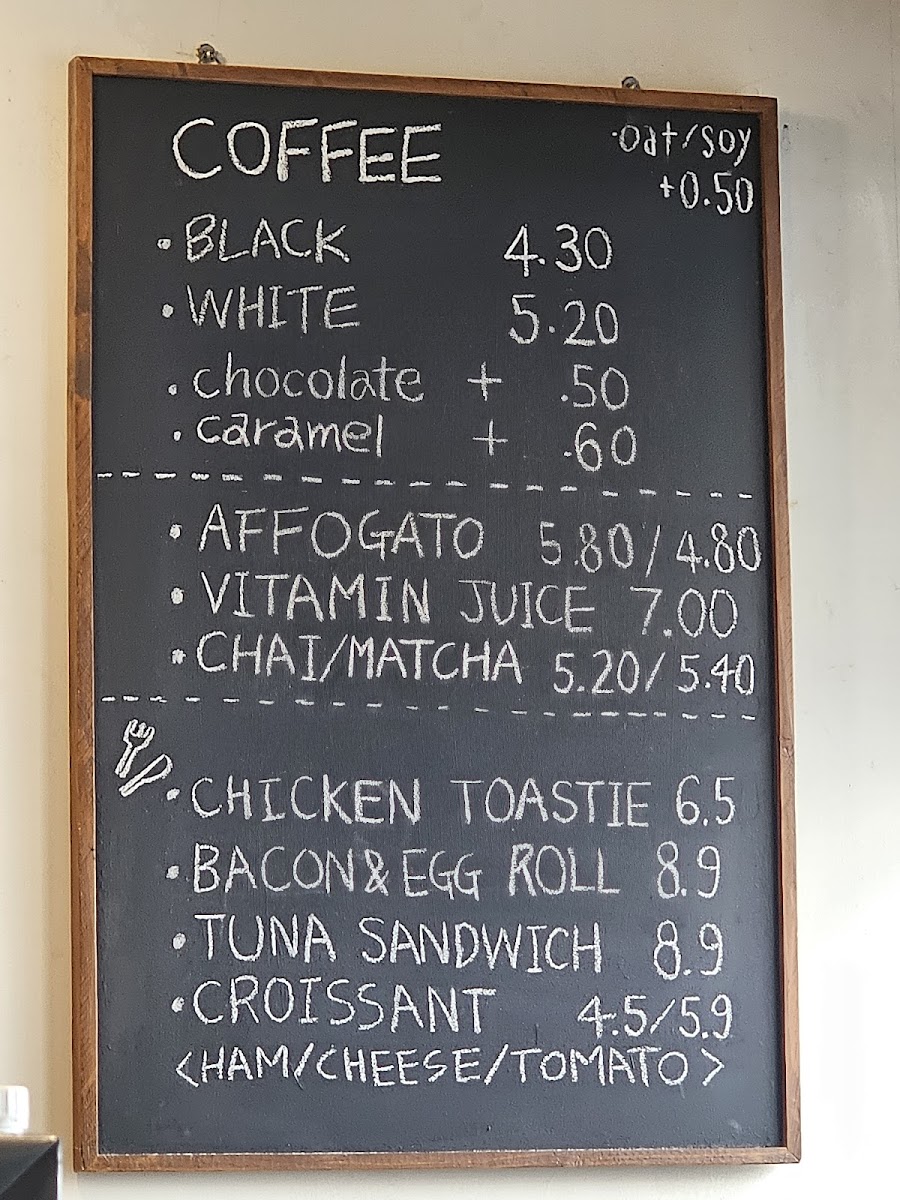 COFFEE
·oat/soy
+0.50
·BLACK 4.30
·WHITE 5.20
·chocolate + .50
·caramel + .60
·AFFOGATO 5.80/4.80
·VITAMIN JUICE 7.00
·CHAI/MATCHA 5.20/5.40
·CHICKEN TOASTIE 6.5
·BACON&EGG ROLL 8.9
·TUNA SANDWICH 8.9
·CROISSANT 4.5/5.9
<HAM/CHEESE/TOMATO>